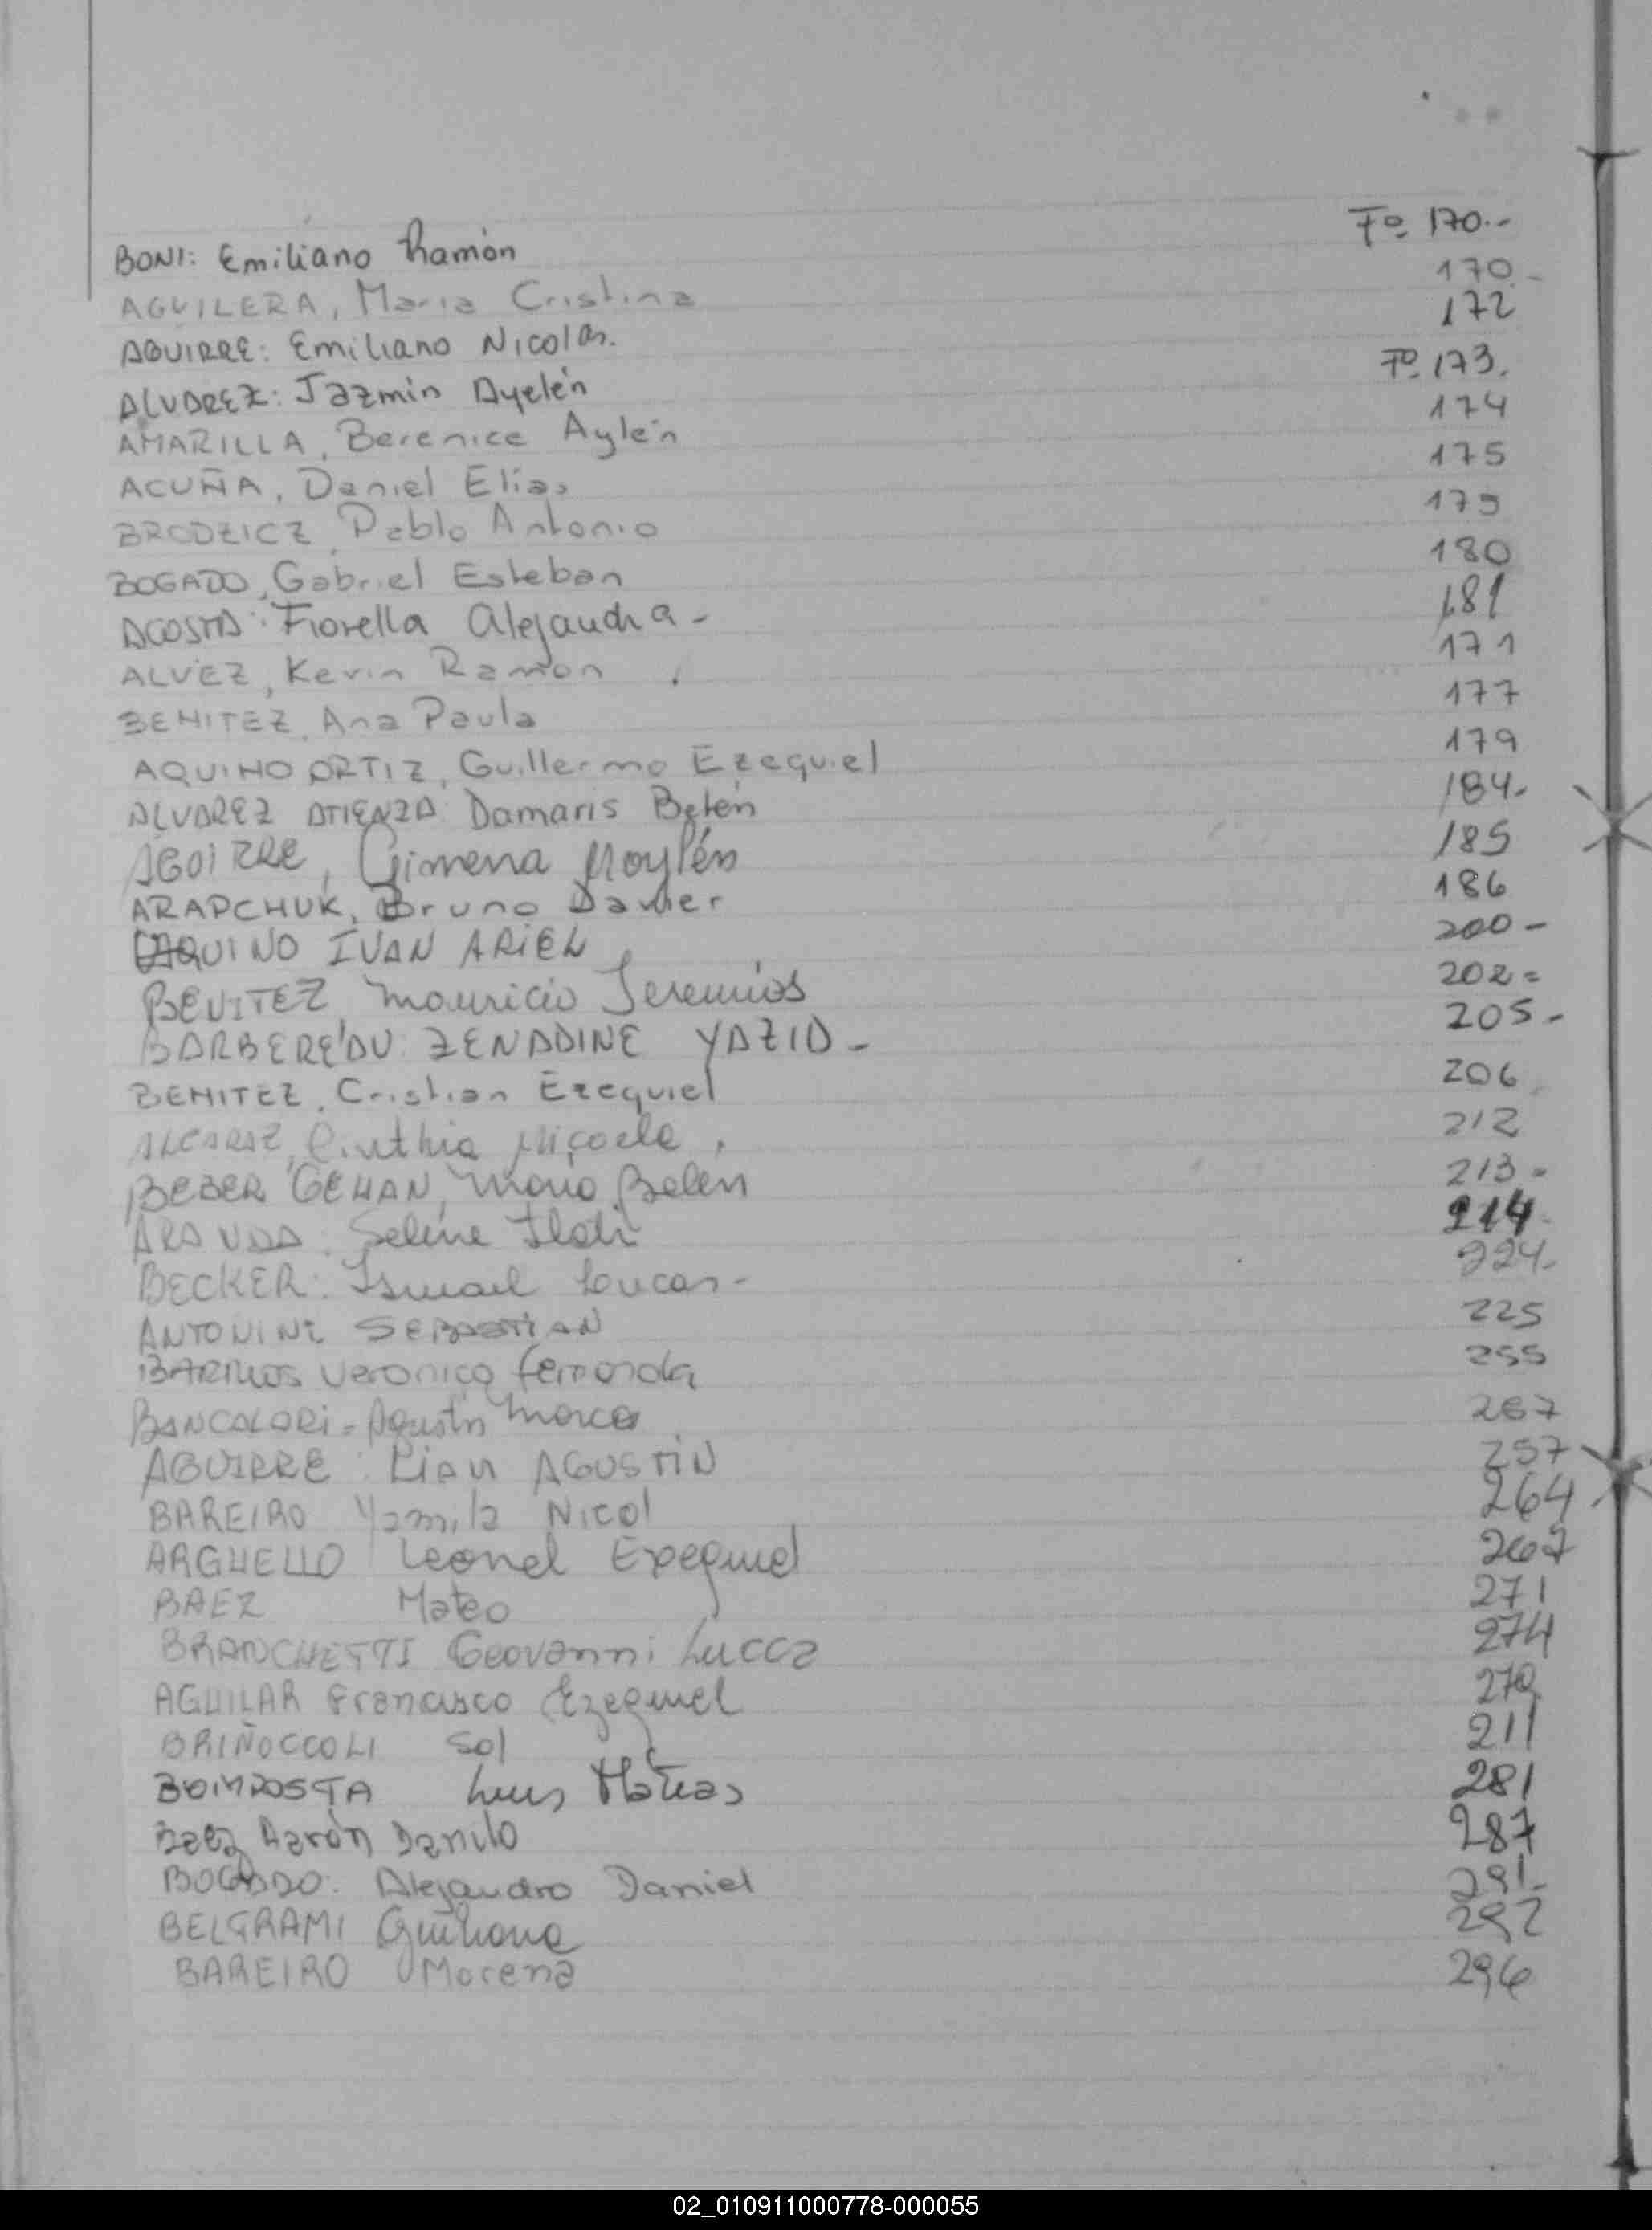 BONI: Emiliano Ramón Fº 170.-
AGUILERA, Maria Cristina 170.-
AGUIRRE: Emiliano Nicolás. 172
ALVAREZ: Jazmin Ayelén Fº 173.
AMARILLA, Berenice Aylén 174
ACUÑA, Daniel Elias 175
BRODZICZ, Pablo Antonio 179
BOGADO, Gabriel Esteban 180
ACOSTA: Fiorella Alejandra - 181
ALVEZ, Kevin Ramón 171
BENITEZ, Ana Paula 177
AQUINO ORTIZ, Guillermo Ezequiel 179
ALVAREZ ATIENZA: Damaris Belén 184-
AGUIRRE, Gimena 185
ARAPCHUK, Bruno Davier 186
AQUINO IVAN ARIEL 200-
BENITEZ, Mauricio Jeremias 202=
BARBERE'AU: ZENADDINE YAZID - 205-
BENITEZ, Cristian Ezequiel 206
ALCARAZ, Cinthia Micaela 212
BEBER GEHAN, Maria Belen 213-
ARANDA: Selene 214-
BECKER: Ismael Lucas- 224-
ANTONINI SEBASTIAN 225
BARRIOS Veronica Fernanda 255
BANCALARI- Agustin 267
AGUIRRE: Lian AGUSTIN 257
BAREIRO Yamila Nicol 264
ARGUELLO Leonel Exequiel 267
BAEZ Mateo 271
BRANCHETTI Geovanni Lucca 274
AGUILAR Francisco Ezequiel
BRIÑOCCOLI Sol 211
BOMPOSTA Luis Matias 281
Baez Aarón Danilo 287
BOGADO: Alejandro Daniel 291-
BELGRAMI Giuliana 292
BAREIRO Morena 296
02_010911000778-000055